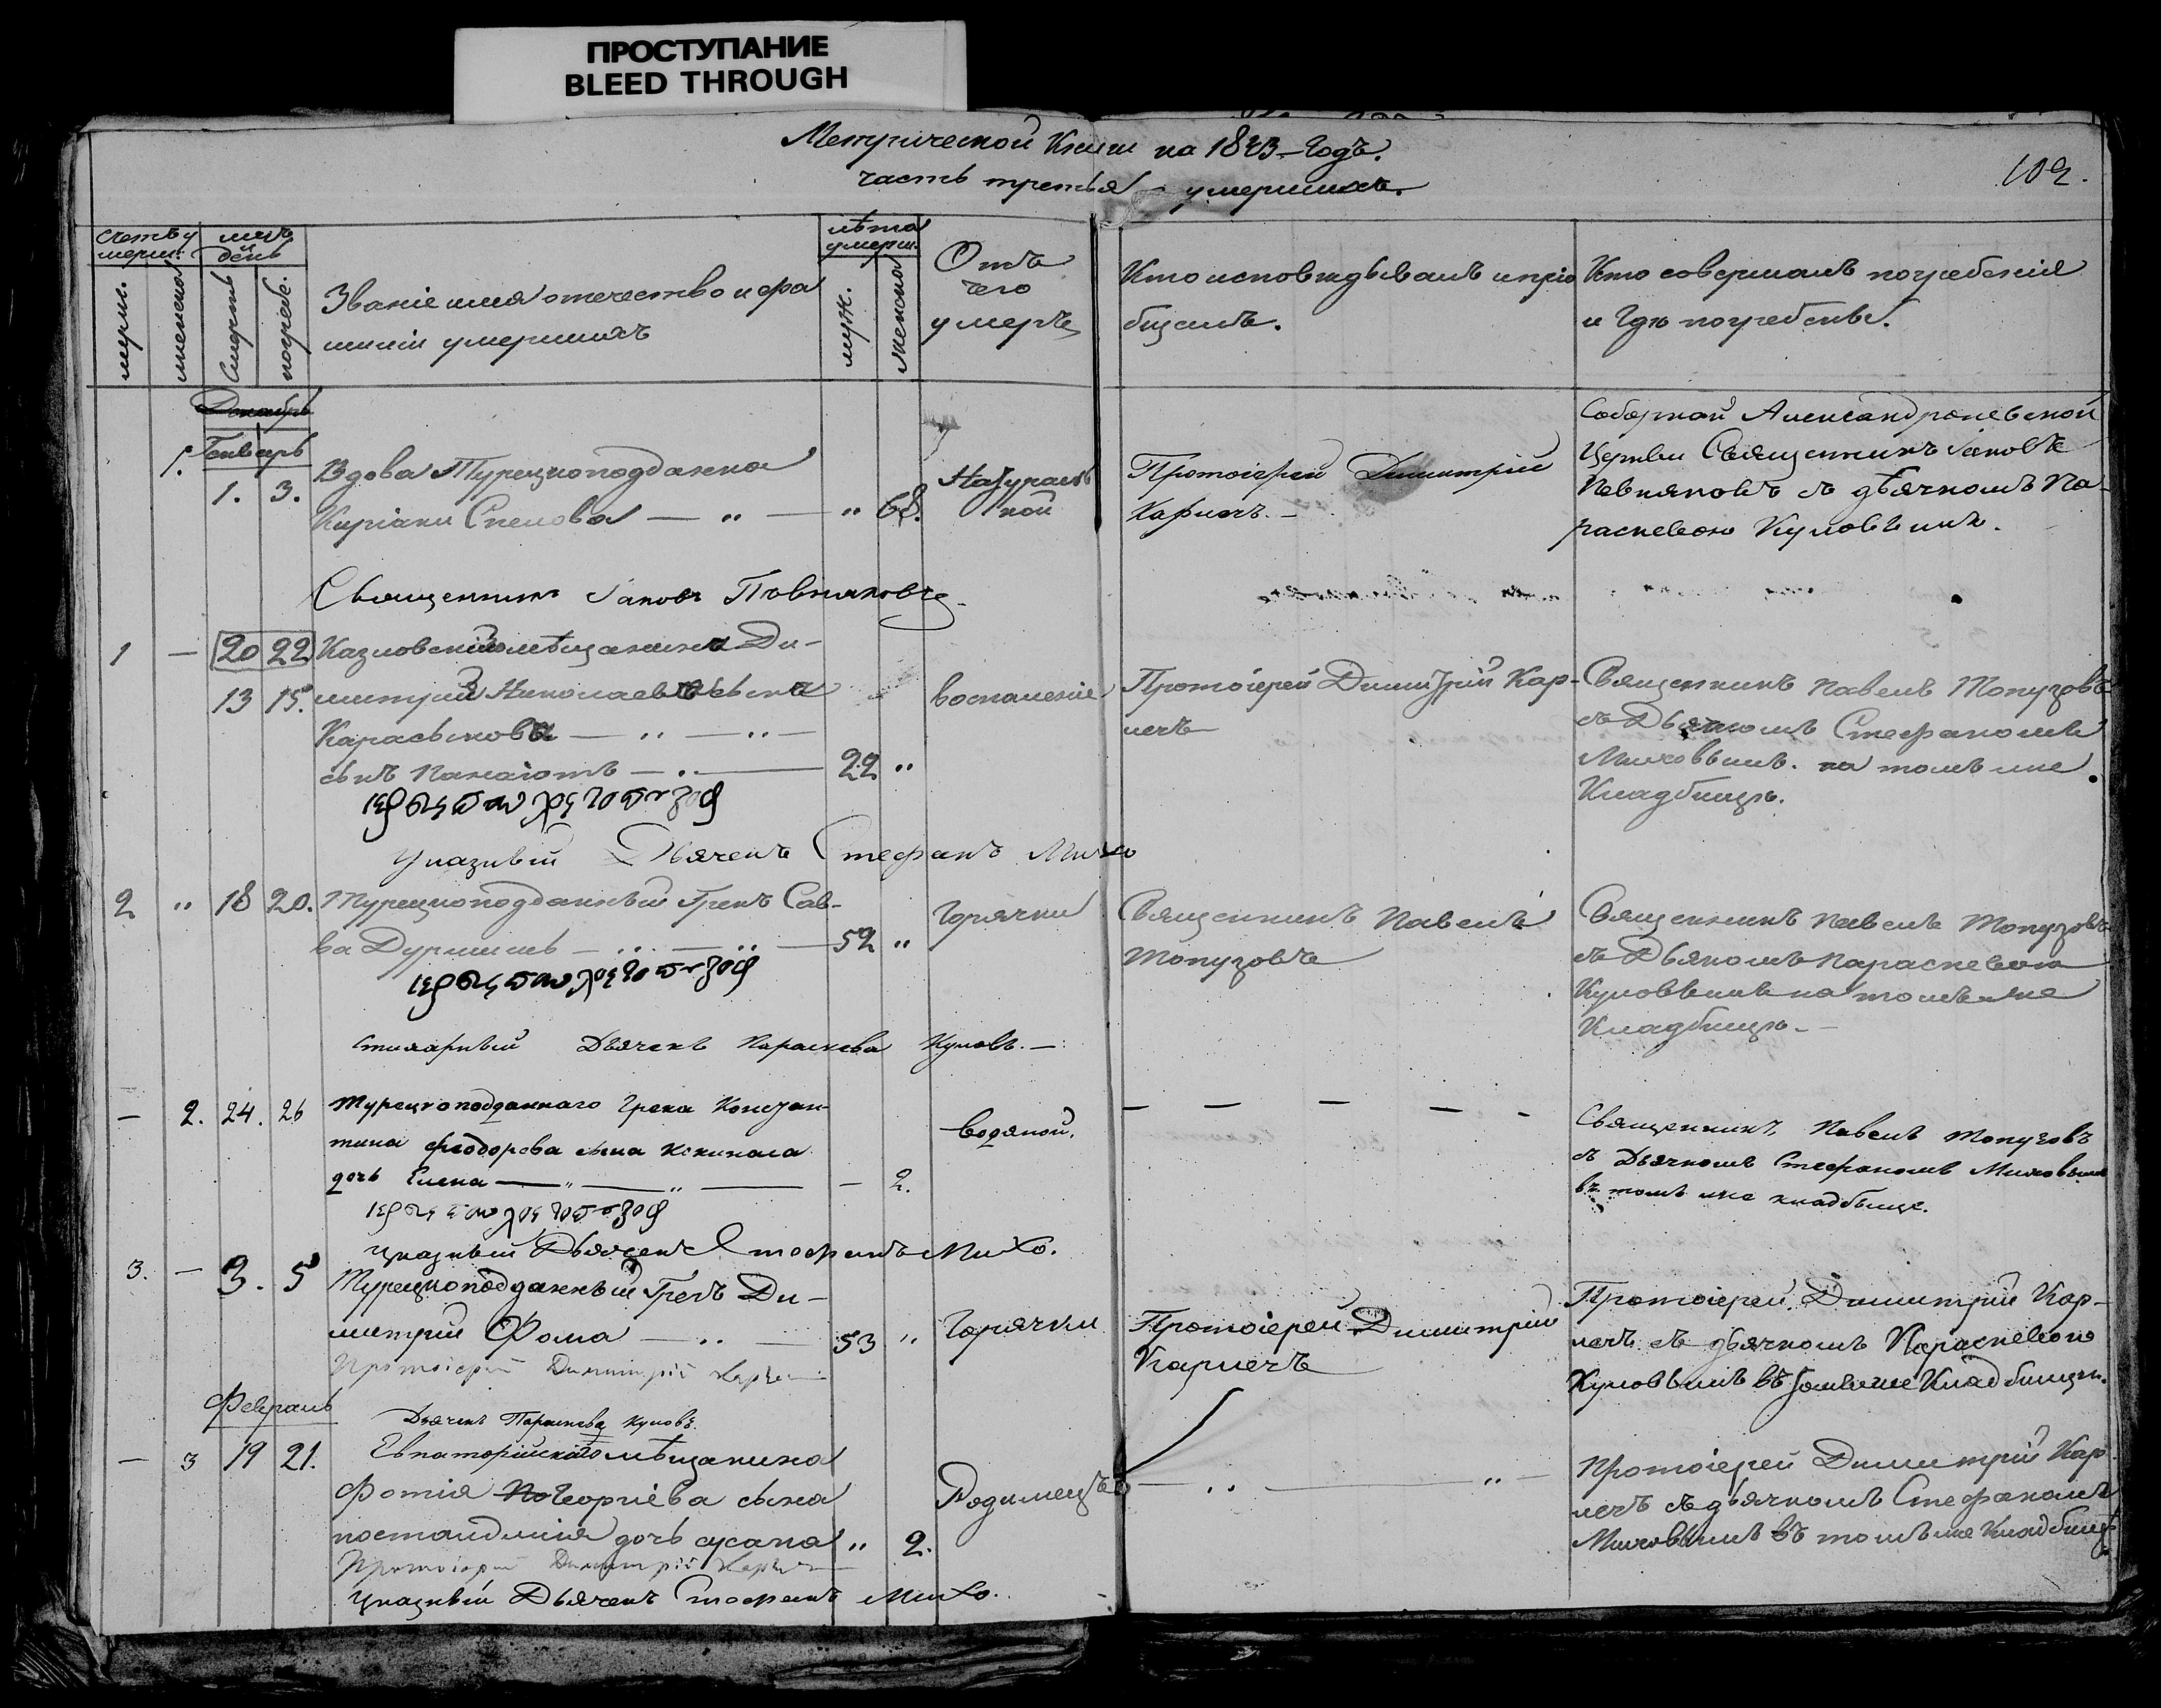 ПРОСТУПАНИЕ
BLEED THROUGH
Метрической Книги на 1843 Годъ.
часть третья – умершихъ.
109.
Счетъ умерш:
мужс.
женска
мцъ и день
Смерть
погребе.
Званіе имя отечество и фамиліи умершихъ
лѣта умерш.
муж.
женска
Отъ
чего
умеръ
Кто исповѣдывалъ и прio
бщалъ.
Кто совершалъ погребеніе
и Гдѣ погребены.
Декабрь
Генварь
1. 1. 3.
Вдова Турецкоподдана
Киріаки Спенова — " — " 68.
Натураль
ной
Протоіерей Димитрій
Карнечъ. –
Соборной Александроневской
Церкви Священникъ Іаковъ
Певняковъ съ дьячкомъ Па-
раскевою Куловымъ.
Священникъ Іаковъ Певняковъ
1 — 20 22 Казловскій мѣщанина Ди-
13 15. митрій Николаевъ сына
Карасынова — " — " —
сынъ Панаіотъ — " — 22 "
воспаленіе
Протоіерей Димитрій Кар-
нечъ
Священникъ Павелъ Топузовъ
съ Дьячкомъ Стефаномъ
Миховымъ. на томъ же
Кладбищѣ.
Указный Дьячекъ Стефанъ Михо
2 " 18 20. Турецкоподданный Грекъ Сав-
ва Дурмишъ — " — " — 52 "
Горячки
Священникъ Павелъ
Топузовъ
Священникъ Павелъ Топузовъ
съ Дьякомъ Параскевою
Куловымъ на томъ же
Кладбищѣ. –
стихарный Дьячекъ Параскева Куловъ. –
— 2. 24. 26 Турецкоподданнаго Грека Констан-
тина Феодорова сына Кокинаса
дочь Елена — " — " — — 2.
водяной.
— — — — -
Священникъ Павелъ Топузовъ
съ Дьячкомъ Стефаномъ Миховымъ
въ томъ же кладбище.
Указный Дьячекъ Стефанъ Михо.
3. — 3. 5 Турецкоподданный Грекъ Ди-
митрій Фома — " — 53 "
Горячки
Протоіерей Димитрій
Карнечъ
Протоіерей Димитрій Кар-
нечъ съ дьячкомъ Параскевою
Куловымъ въ томъ же Кладбищѣ.
Протоіерей Димитрій Карнечъ
Февраль
Дьячекъ Параскева Куловъ.
— 3 19 21. Евпаторійскаго мѣщанина
Фотія Георгіева сына
дочь сусана " 2.
Родимецъ
— " — " —
Протоіерей Димитрій Кар
нечъ съ дьячкомъ Стефаномъ
Миховымъ въ томъ же Кладбищѣ
Протоіерей Димитрій Карнечъ
Указный Дьячекъ Стефанъ Михо.